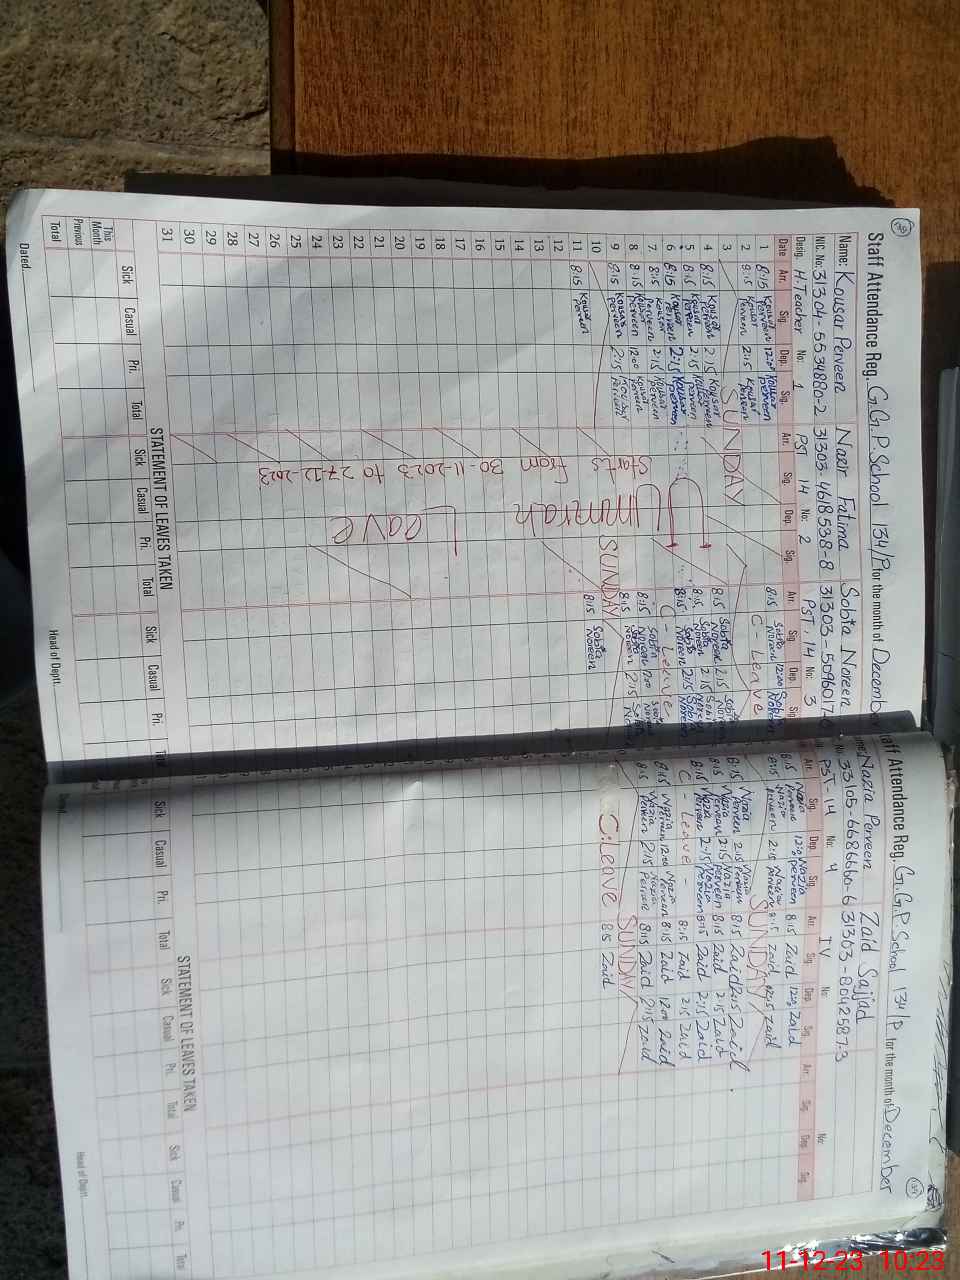 Staff Attendance Reg. G.G.P.School 134/P for the month of December
Name: Kousar Perveen Nazir Fatima Sobia Noreen
NIC. No: 31304-5534880-2 31303-4618538-8
Desig. H.Teacher No: 1 PST 14 No: 2 PST, 14 No: 3
Date Arr. Sig. Dep. Sig. Arr. Sig. Dep. Sig. Arr. Sig. Dep. Sig.
1 8:15 Kousar Perveen 12:00 Kousar Perveen 8:15 Sobia Noreen 12:00 Sobia Noreen
2 8:15 Kousar Perveen 2:15 Kousar Perveen C Leave
3 SUNDAY
4 8:15 Kousar Perveen 2:15 Kousar Perveen 8:15 Sobia Noreen 2:15 Sobia Noreen
5 8:15 Kousar Perveen 2:15 Kousar Perveen 8:15 Sobia Noreen 2:15 Sobia Noreen
6 8:15 Kousar Perveen 2:15 Kousar Perveen 8:15 Sobia Noreen 2:15 Sobia Noreen
7 8:15 Kousar Perveen 2:15 Kousar Perveen C - Leave
8 8:15 Kousar Perveen 12:00 Kousar Perveen 8:15 Sobia Noreen
9 8:15 Kousar Perveen 2:15 Kousar Perveen 8:15 Sobia Noreen 2:15 Sobia Noreen
10 SUNDAY
11 8:15 Kousar Perveen 8:15 Sobia Noreen
12
13
14
15
16
17
18
19
20
21
22
23
24
25
26
27
28
29
30
31
Ummrah
Leave
Starts from 30-11-2023 to 27-12-2023
STATEMENT OF LEAVES TAKEN
Sick Casual Pri. Total Sick Casual Pri. Total Sick Casual Pri.
This Month
Previous
Total
Dated Head of Deptt.
Staff Attendance Reg. G.G.P.School 134/P for the month of December
Name: Nazia Perveen Zaid Sajjad
33105-6686660-6 31303-8042587-3
PST-14 No: 4 IV No: No:
Arr. Sig. Dep. Sig. Arr. Sig. Dep. Sig. Arr. Sig. Dep. Sig.
8:15 Nazia Perveen 12:00 Nazia Perveen 8:15 Zaid 12:00 Zaid
8:15 Nazia Perveen 2:15 Nazia Perveen 8:15 Zaid 2:15 Zaid
SUNDAY
8:15 Nazia Perveen 2:15 Nazia Perveen 8:15 Zaid 2:15 Zaid
8:15 Nazia Perveen 2:15 Nazia Perveen 8:15 Zaid 2:15 Zaid
8:15 Nazia Perveen 2:15 Nazia Perveen 8:15 Zaid 2:15 Zaid
C - Leave 8:15 Zaid 2:15 Zaid
8:15 Nazia Perveen 12:00 Nazia Perveen 8:15 Zaid 12:00 Zaid
8:15 Nazia Perveen 2:15 Nazia Perveen 8:15 Zaid 2:15 Zaid
SUNDAY
C.Leave 8:15 Zaid
STATEMENT OF LEAVES TAKEN
Sick Casual Pri. Total Sick Casual Pri. Total Sick Casual Pri. Total
Dated Head of Deptt.
11-12-23 10:23